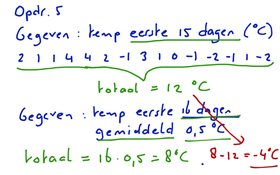 Opdr. 5
Gegeven : temp eerste 15 dagen (°C)
2 1 1 4 4 2 -1 3 1 0 -1 -2 -1 1 -2
totaal = 12 °C
Gegeven : temp eerste 16 dagen
gemiddeld 0,5 °C
totaal = 16 · 0,5 = 8 °C . 8-12 = -4 °C